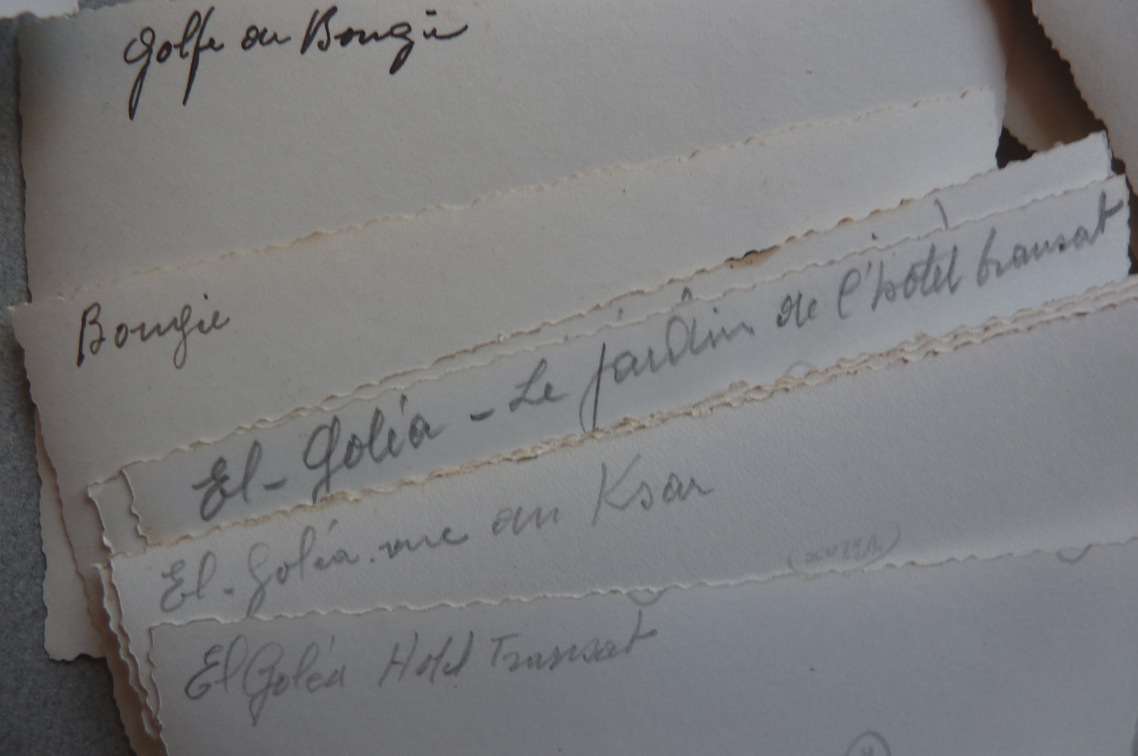 Golfe de Bougie
Bougie
El-Goléa - Le jardin de l'hôtel transat
El-Goléa. vue du Ksar
El Goléa Hotel Transat